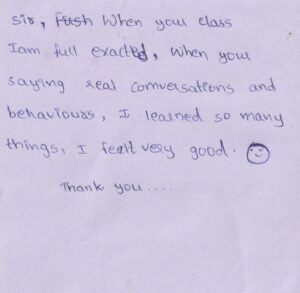 sir, When your class
I am full exacted, When your
saying real comversations and
behaviours, I learned so many
things, I feelt very good.
Thank you ....